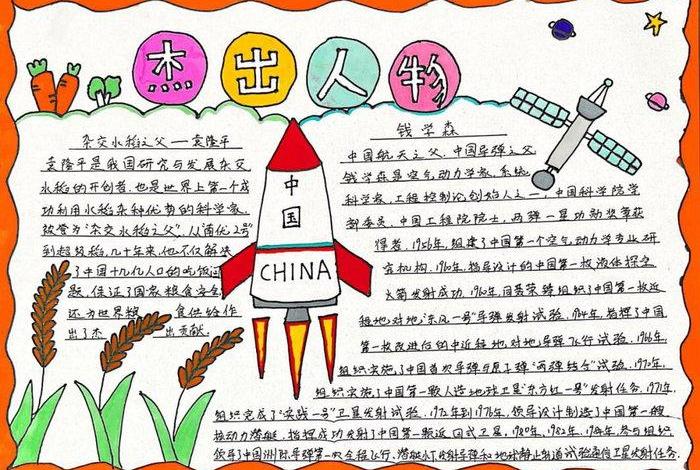 杰出人物
杂交水稻之父——袁隆平
袁隆平是我国研究与发展杂交
水稻的开创者,也是世界上第一个成
功利用水稻杂种优势的科学家.
被誉为“杂交水稻之父”.从“南优2号”
到超级稻,几十年来,他不仅解决
了中国十几亿人口的吃饭问
题,保证了国家粮食安全
还为世界粮 食供给作
出了杰 出贡献.
中
国
CHINA
钱学森
中国航天之父、中国导弹之父
钱学森是空气动力学家,系统
科学家,工程控制论创始人之一,中国科学院学
部委员、中国工程院院士,两弹一星功勋奖章获
得者.1956年,组建了中国第一个空气动力学专业研
究机构.1960年,指导设计的中国第一枚液体探空
火箭发射成功.1960年,同聂荣臻组织了中国第一枚近
程地对地“东风一号”导弹发射试验.1964年,指挥了中国
第一枚改进后的中近程地对地导弹飞行试验.1966年,
组织实施了中国首次导弹与原子弹“两弹结合”试验.1970年,
组织实施了中国第一颗人造地球卫星“东方红一号”发射任务.1971年,
组织完成了“实践一号”卫星发射试验.1972年到1976年,领导设计制造了中国第一艘
核动力潜艇,指挥成功发射了中国第一颗返回式卫星.1980年,1982年,1984年,参与组织、
领导了中国洲际导弹第一次全程飞行、潜艇水下发射导弹和地球静止轨道试验通信卫星发射任务.